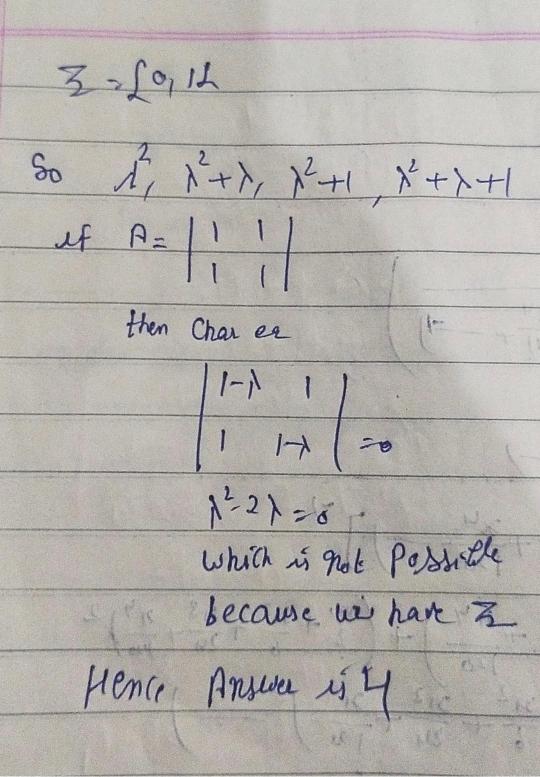 ℤ₂ = {0, 1}
So λ², λ²+λ, λ²+1, λ²+λ+1
if A = | 1 1 |
| 1 1 |
then Char eq
| 1-λ 1 |
| 1 1-λ | = 0
λ²-2λ = 0
which is not possible
because we have ℤ₂
Hence Answer is 4